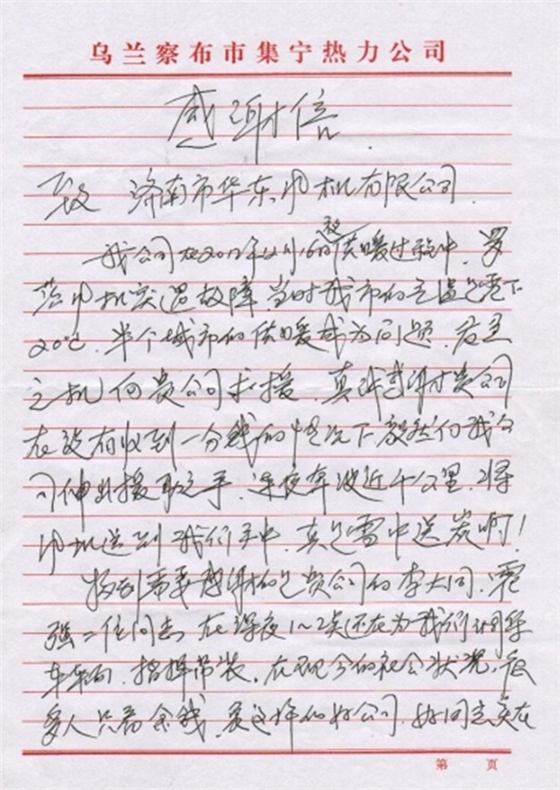 乌兰察布市集宁热力公司
感谢信
致 济南市华东风机有限公司.
我公司在2012年12月16日夜供暖过程中,罗
茨风机突遇故障.当时我市的气温是零下
20℃.半个城市的供暖成为问题.危急
之机向贵公司求援.真诚感谢贵公司
在没有收到一分钱的情况下毅然向我公
司伸出援助之手.连夜奔波近千公里.将
风机送到我们手中.真是雪中送炭啊!
特别需要感谢的是贵公司的李大同.
强二位同志.在深夜1~2点还在为我们
车辆.指挥吊装.在现今的社会状况.很
多人只看金钱.像这样的好公司.好同志实在
第 页